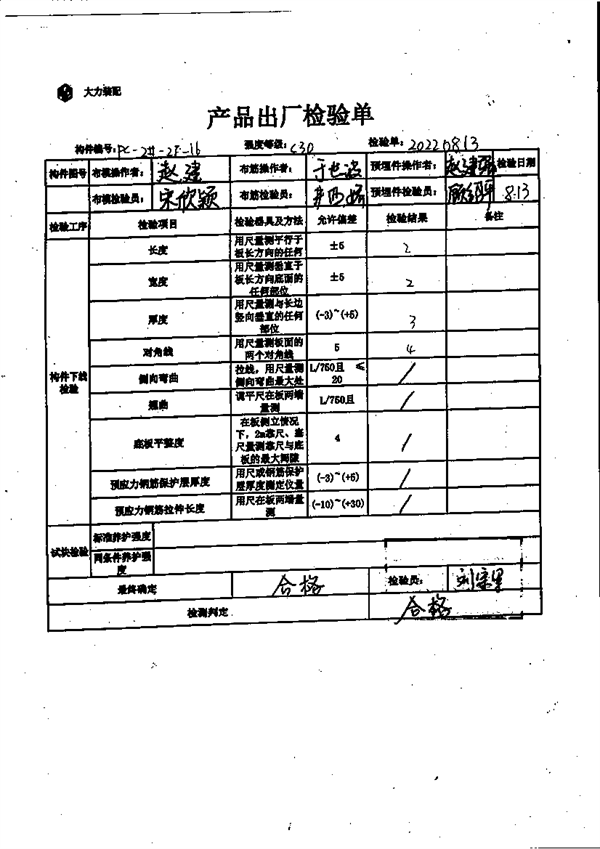 大力装配
产品出厂检验单
构件编号: PC-2#-2F-16 强度等级: C30 检验单: 20220813
构件图号 布模操作者: 赵建 布筋操作者: 预埋件操作者: 检验日期
布模检验员: 宋欣颖 布筋检验员: 预埋件检验员: 8.13
检验工序 检验项目 检验器具及方法 允许偏差 检验结果 备注
构件下线检验
长度 用尺量测平行于板长方向的任何 ±5 2
宽度 用尺量测垂直于板长方向底面的任何部位 ±5 2
厚度 用尺量测与长边竖向垂直的任何部位 (-3)~(+5) 3
对角线 用尺量测板面的两个对角线 5 4
侧向弯曲 拉线，用尺量测侧向弯曲最大处 L/750且 ≤20 /
翘曲 调平尺在板两端量测 L/750且 /
底板平整度 在板侧立情况下，2m靠尺、塞尺量测靠尺与底板的最大间隙 4 /
预应力钢筋保护层厚度 用尺或钢筋保护层厚度测定仪量 (-3)~(+5) /
预应力钢筋拉伸长度 用尺在板两端量测 (-10)~(+30) /
试块检验 标准养护强度
同条件养护强度
最终确定 合格 检验员:
检测判定 合格